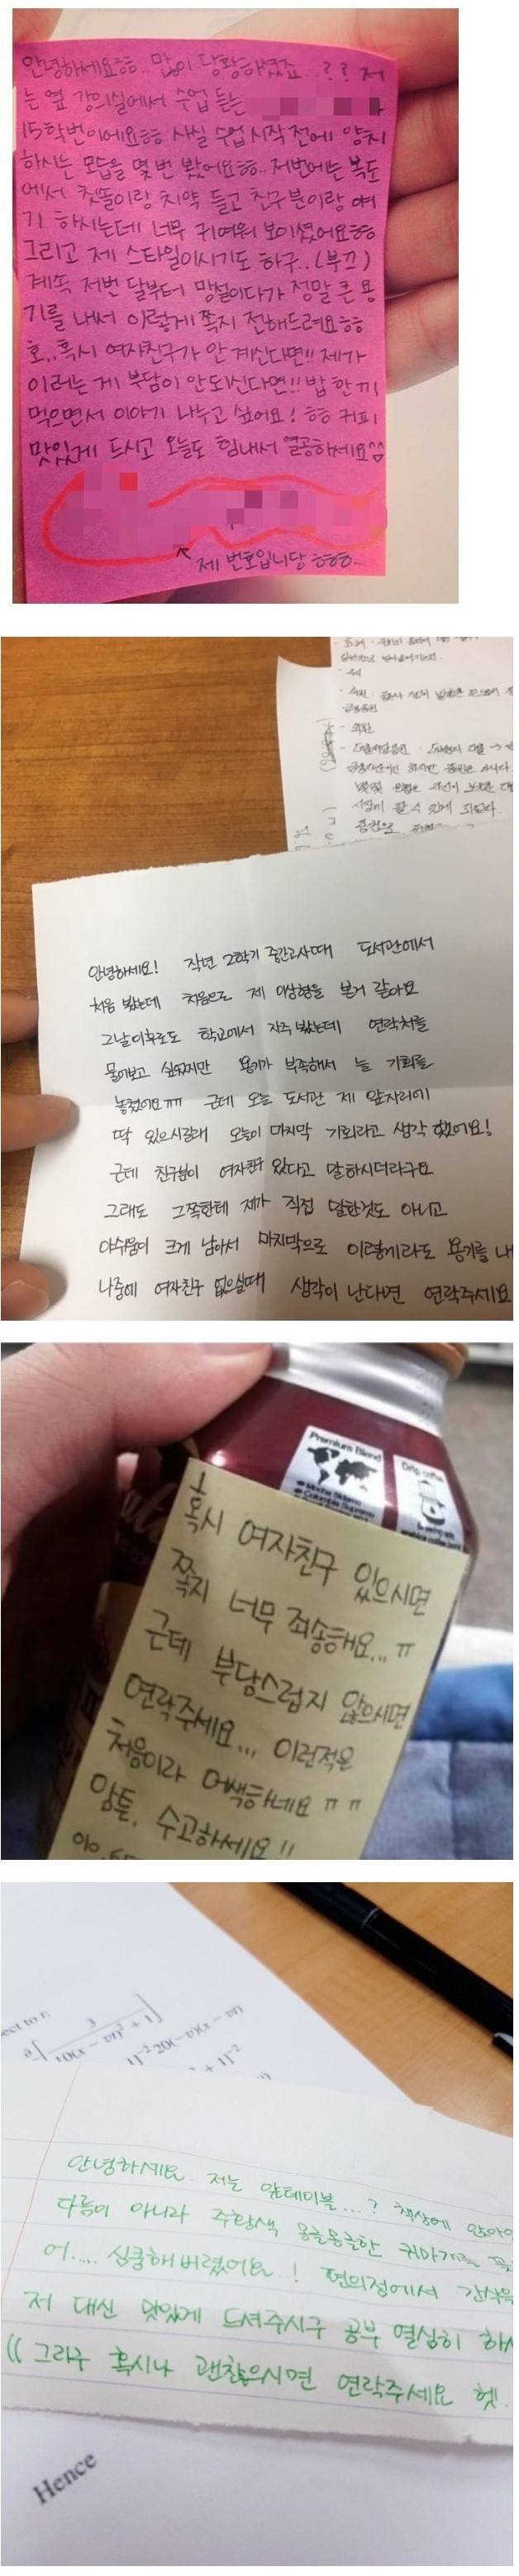 안녕하세요ㅎㅎ.. 많이 당황하셨죠..?? 저
는 옆 강의실에서 수업 듣는
15학번이에요ㅎㅎ 사실 수업 시작 전에 양치
하시는 모습을 몇 번 봤어요ㅎㅎ.. 저번에는 복도
에서 칫똘이랑 치약 들고 친구분이랑 얘
기 하시는데 너무 귀여워 보이셨어요ㅎㅎ
그리고 제 스타일이시기도 하구..(부끄)
계속 저번 달부터 망설이다가 정말 큰 용
기를 내서 이렇게 쪽지 전해드려요ㅎㅎ
호,,혹시 여자친구가 안 계신다면!! 제가
이러는 게 부담이 안되신다면!! 밥 한 끼
먹으면서 이야기 나누고 싶어요! ㅎㅎ 커피
맛있게 드시고 오늘도 힘내서 열공하세요^^
제 번호입니당 ㅎㅎㅎ..
안녕하세요! 작년 2학기 중간고사때 도서관에서
처음 봤는데 처음으로 제 이상형을 본거 같아요
그날이후로도 학교에서 자주 봤는데 연락처를
물어보고 싶었지만 용기가 부족해서 늘 기회를
놓쳤어요ㅠㅠ 근데 오늘 도서관 제 앞자리에
딱 있으시길래 오늘이 마지막 기회라고 생각 했어요!
근데 친구분이 여자친구 있다고 말하시더라구요
그래도 그쪽한테 제가 직접 말한것도 아니고
아쉬움이 크게 남아서 마지막으로 이렇게라도 용기를 내
나중에 여자친구 없으실때 생각이 난다면 연락주세요
Premium Blend
Drip coffee
혹시 여자친구 있으시면
쪽지 너무 죄송해요... ㅠ
근데 부담스럽지 않으시면
연락주세요... 이런적은
처음이라 어색하네요 ㅠㅠ
암튼, 수고하세요!!
010.
안녕하세요. 저는 앞테이블...? 책상에 앉아
다름이 아니라 주황색 몽글몽글한 귀마개를
어.... 심쿵해버렸어요..! 편의점에서 간식을
저 대신 맛있게 드셔주시구 공부 열심히 하
(( 그리구 혹시나 괜찮으시면 연락주세요 헷!
Hence